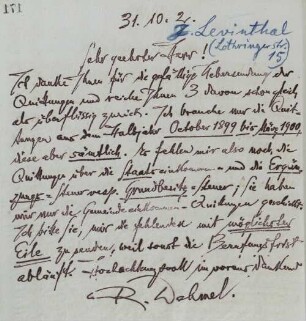 151
31. 10. 2.
Z. Levinthal
(Lothringerstr.
15)
Sehr geehrter Herr!
Ich danke Ihnen für die gefällige Uebersendung der
Quittungen und reiche Ihnen 3 davon sogleich
als überflüssig zurück. Ich brauche nur die Quit-
tungen aus dem Halbjahr October 1899 bis März 1900,
diese aber sämtlich. Es fehlen mir also noch die
Quittungen über die Staatseinkommen- und die Ergän-
zungs-Steuer resp. Grundbesitz-Steuer; Sie haben
mir nur die Gemeindeeinkommen-Quittungen geschickt.
Ich bitte sie, mir die fehlenden mit möglichster
Eile zu senden, weil sonst die Berufungsfrist
abläuft. Hochachtungsvoll im voraus dankend
R. Dehmel.